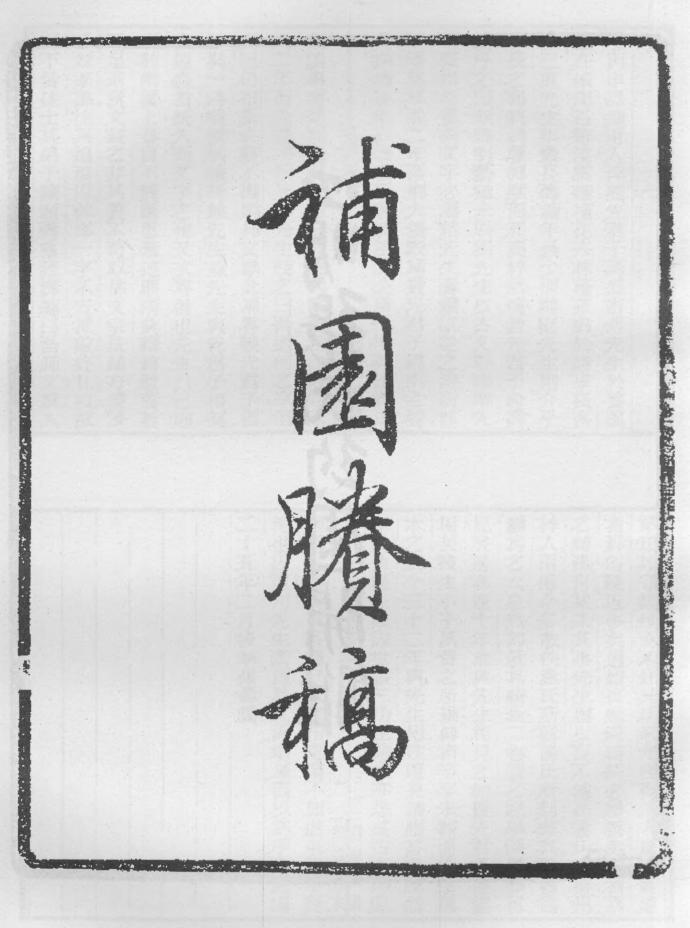 補園賸稿